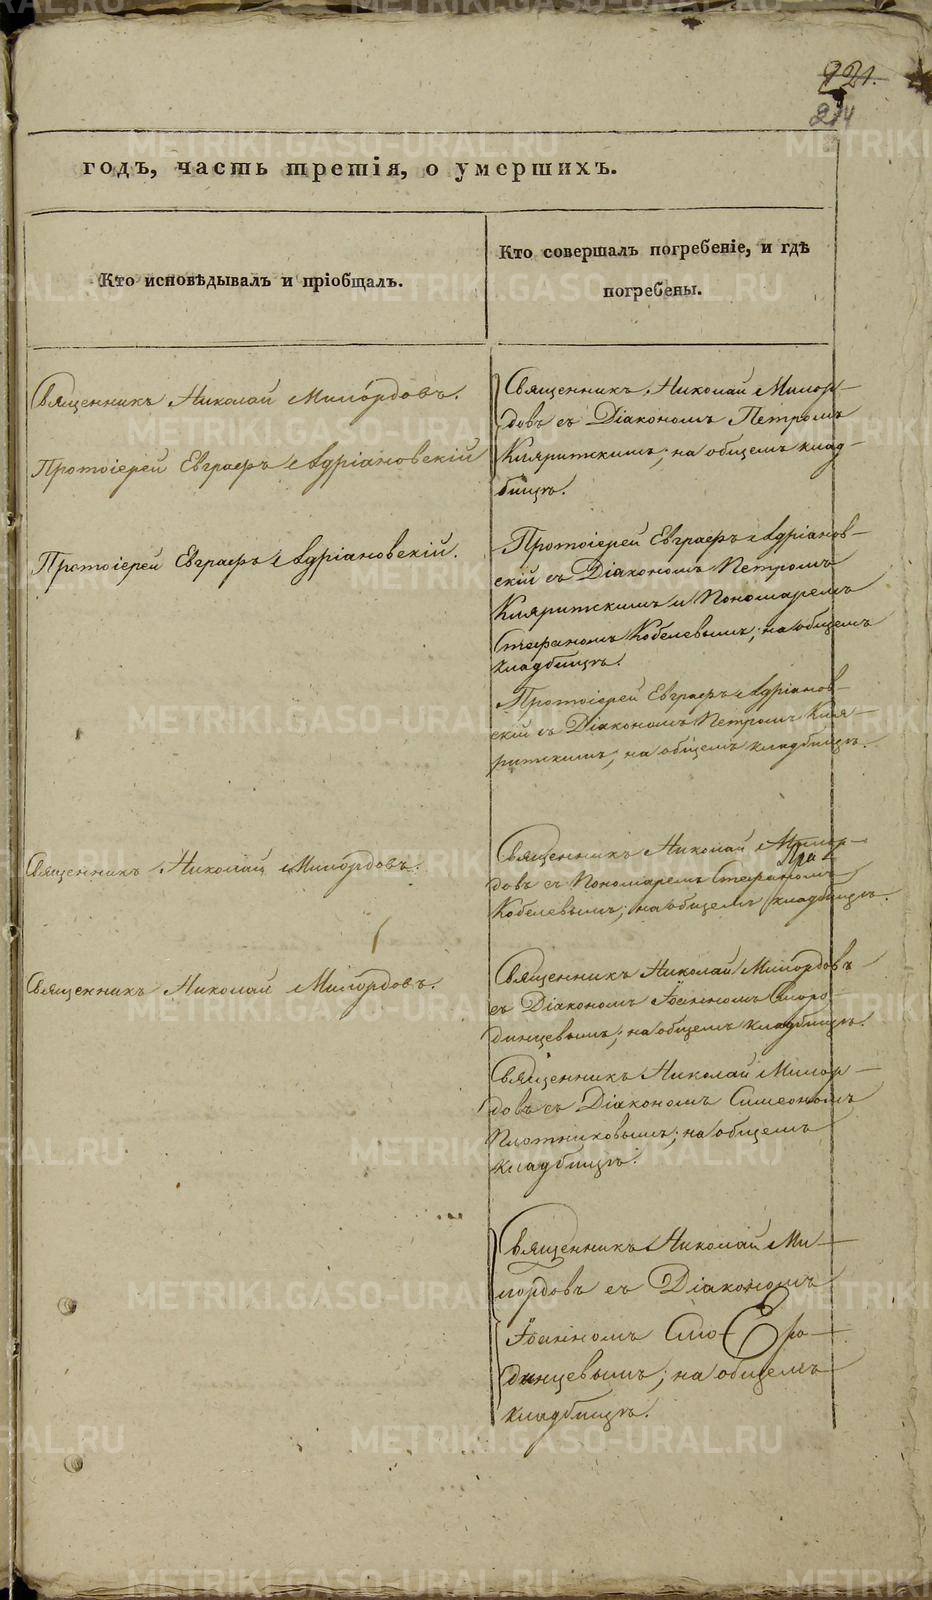 921.
214
годъ, часть третія, о умершихъ.
Кто исповѣдывалъ и пріобщалъ.
Кто совершалъ погребеніе, и гдѣ
погребены.
Священникъ Николай Милордовъ.
Протоіерей Евграфъ Адріановскій
Священникъ Николай Милор-
довъ съ Діакономъ Петромъ
Кляритскимъ; на общемъ клад-
бищѣ.
Протоіерей Евграфъ Адріановскій.
Протоіерей Евграфъ Адріанов-
скій съ Діакономъ Петромъ
Кляритскимъ и Пономаремъ
Стефаномъ Кобелевымъ; на общемъ
кладбищѣ.
Протоіерей Евграфъ Адріанов-
скій съ Діакономъ Петромъ Кля-
ритскимъ; на общемъ кладбищѣ.
Священникъ Николай Милордовъ.
Священникъ Николай Милор-
довъ съ Пономаремъ Стефаномъ
Кобелевымъ; на общемъ кладбищѣ.
Священникъ Николай Милордовъ.
Священникъ Николай Милордовъ
съ Діакономъ Іоанномъ Сморо-
динцевымъ; на общемъ кладбищѣ.
Священникъ Николай Милор-
довъ съ Діакономъ Симеономъ
Плотниковымъ; на общемъ
кладбищѣ.
Священникъ Николай Ми-
лордовъ съ Діакономъ
Іоанномъ Сморо-
динцевымъ; на общемъ
кладбищѣ.
METRIKI.GASO-URAL.RU